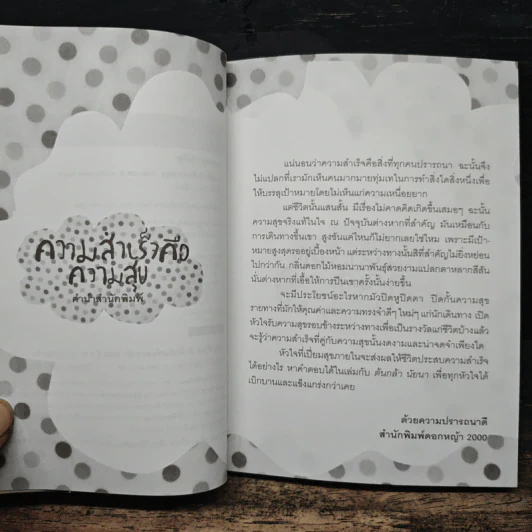 ความสำเร็จคือ
ความสุข
คำนำสำนักพิมพ์
แน่นอนว่าความสำเร็จคือสิ่งที่ทุกคนปรารถนา ฉะนั้นจึง
ไม่แปลกที่เรามักเห็นคนมากมายทุ่มเทในการทำสิ่งใดสิ่งหนึ่งเพื่อ
ให้บรรลุเป้าหมายโดยไม่เห็นแก่ความเหนื่อยยาก
แต่ชีวิตนั้นแสนสั้น มีเรื่องไม่คาดคิดเกิดขึ้นเสมอๆ ฉะนั้น
ความสุขจริงแท้ในใจ ณ ปัจจุบันต่างหากที่สำคัญ มันเหมือนกับ
การเดินทางขึ้นเขา สูงชันแค่ไหนก็ไม่ยากเลยใช่ไหม เพราะมีเป้า-
หมายสูงสุดรออยู่เบื้องหน้า แต่ระหว่างทางนั้นสิที่สำคัญไม่ยิ่งหย่อน
ไปกว่ากัน กลิ่นดอกไม้หอมนานาพันธุ์สวยงามแปลกตาหลากสีสัน
นั่นต่างหากที่เอื้อให้การปีนเขาครั้งนั้นง่ายขึ้น
จะมีประโยชน์อะไรหากมัวปิดหูปิดตา ปิดกั้นความสุข
รายทางที่มักให้คุณค่าและความทรงจำดีๆ ใหม่ๆ แก่นักเดินทาง เปิด
หัวใจรับความสุขรอบข้างระหว่างทางเพื่อเป็นรางวัลแก่ชีวิตบ้างแล้ว
จะรู้ว่าความสำเร็จที่คู่กับความสุขนั้นงดงามและน่าจดจำเพียงใด
หัวใจที่เปี่ยมสุขภายในจะส่งผลให้ชีวิตประสบความสำเร็จ
ได้อย่างไร หาคำตอบได้ในเล่มกับ ต้นกล้า นัยนา เพื่อทุกหัวใจได้
เบิกบานและแข็งแกร่งกว่าเคย
ด้วยความปรารถนาดี
สำนักพิมพ์ดอกหญ้า 2000